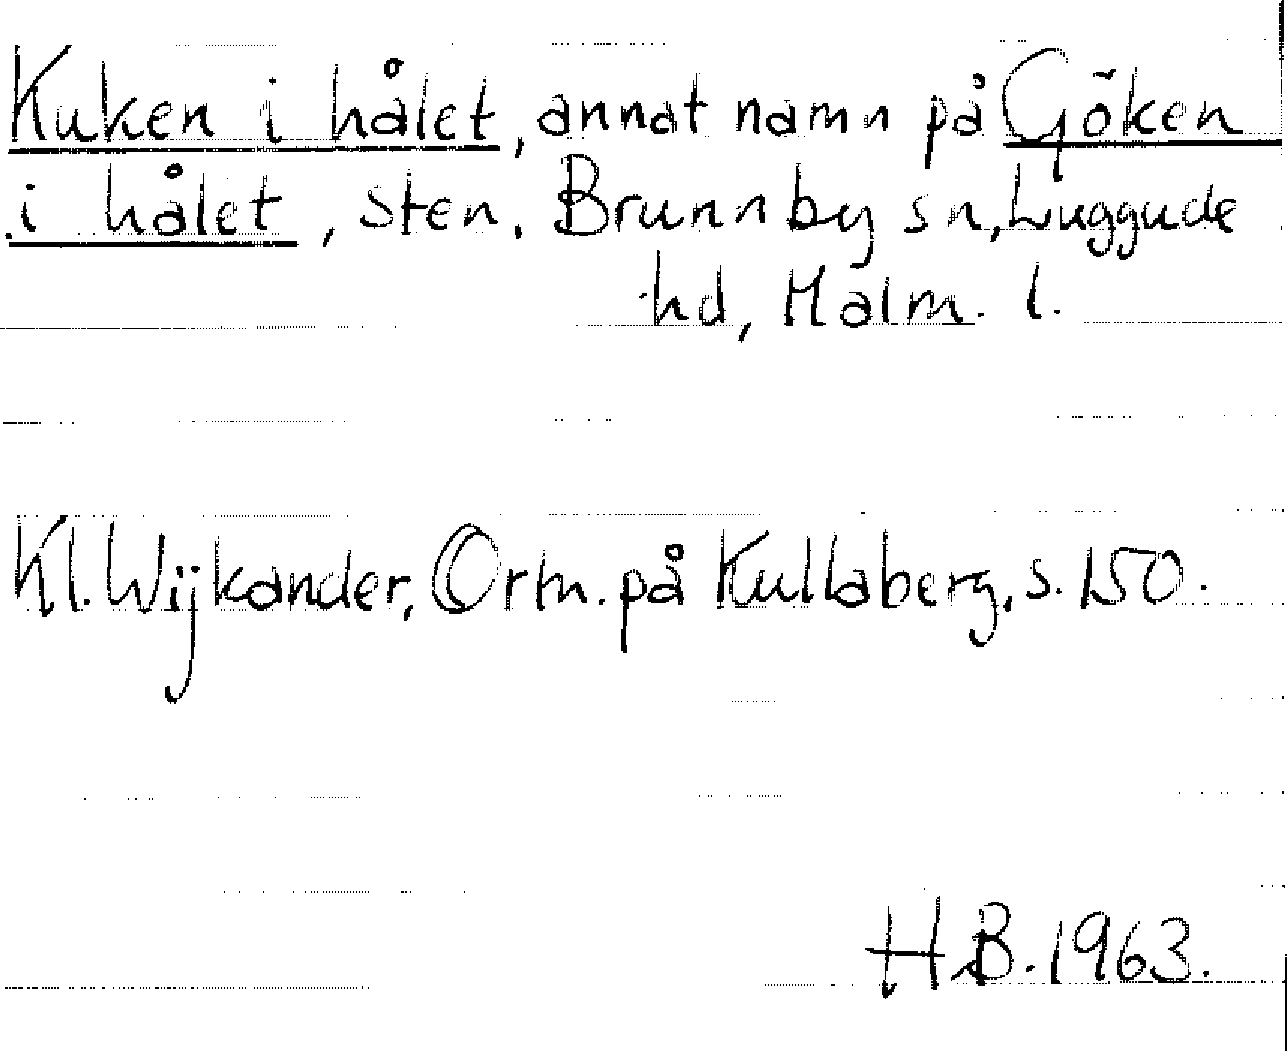 Kuken i hålet, annat namn på Göken
i hålet, sten. Brunnby sn, Luggude
hd, Malm. l.
Kl. Wijkander, Ortn. på Kullaberg, s. 150.
H.B. 1963.